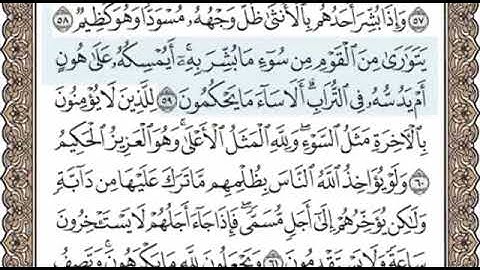 ٥٧ وَإِذَا بُشِّرَ أَحَدُهُم بِٱلْأُنثَىٰ ظَلَّ وَجْهُهُۥ مُسْوَدًّا وَهُوَ كَظِيمٌ ٥٨
يَتَوَٰرَىٰ مِنَ ٱلْقَوْمِ مِن سُوٓءِ مَا بُشِّرَ بِهِۦٓ ۚ أَيُمْسِكُهُۥ عَلَىٰ هُونٍ
أَمْ يَدُسُّهُۥ فِى ٱلتُّرَابِ ۗ أَلَا سَآءَ مَا يَحْكُمُونَ ٥٩ لِلَّذِينَ لَا يُؤْمِنُونَ
بِٱلْءَاخِرَةِ مَثَلُ ٱلسَّوْءِ ۖ وَلِلَّهِ ٱلْمَثَلُ ٱلْأَعْلَىٰ ۚ وَهُوَ ٱلْعَزِيزُ ٱلْحَكِيمُ
٦٠ وَلَوْ يُؤَاخِذُ ٱللَّهُ ٱلنَّاسَ بِظُلْمِهِم مَّا تَرَكَ عَلَيْهَا مِن دَآبَّةٍ
وَلَٰكِن يُؤَخِّرُهُمْ إِلَىٰٓ أَجَلٍ مُّسَمًّى ۖ فَإِذَا جَآءَ أَجَلُهُمْ لَا يَسْتَـْٔخِرُونَ
سَاعَةً ۖ وَلَا يَسْتَقْدِمُونَ ٦١ وَيَجْعَلُونَ لِلَّهِ مَا يَكْرَهُونَ ۚ وَتَصِفُ